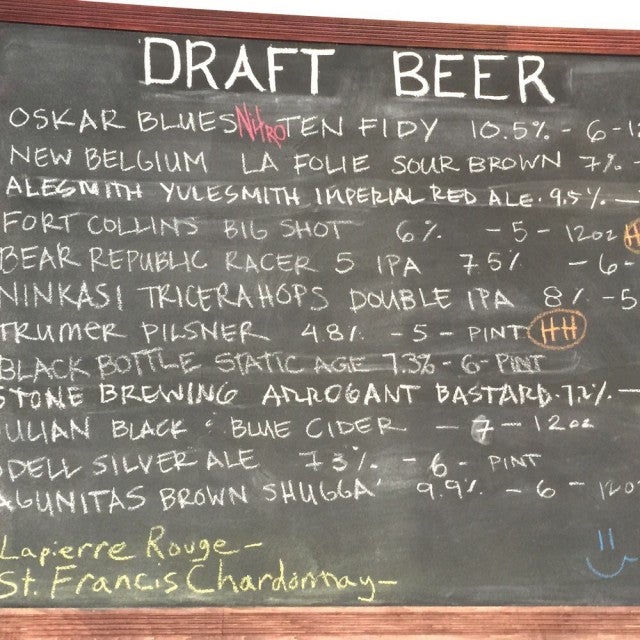 DRAFT BEER
OSKAR BLUES NITRO TEN FIDY 10.5% - 6 - 12
NEW BELGIUM LA FOLIE SOUR BROWN 7% -
ALESMITH YULESMITH IMPERIAL RED ALE. 9.5% -
FORT COLLINS BIG SHOT 6% - 5 - 12oz H
BEAR REPUBLIC RACER 5 IPA 7.5% - 6 -
NINKASI TRICERAHOPS DOUBLE IPA 8% - 5
TRUMER PILSNER 4.8% - 5 - PINT HH
BLACK BOTTLE STATIC AGE 7.3% - 6 - PINT
STONE BREWING ARROGANT BASTARD. 7.2% -
ULIAN BLACK & BLUE CIDER - 7 - 12oz
DELL SILVER ALE 7.3% - 6 - PINT
AGUNITAS BROWN SHUGGA' 9.9% - 6 - 12oz
Lapierre Rouge -
St. Francis Chardonnay -